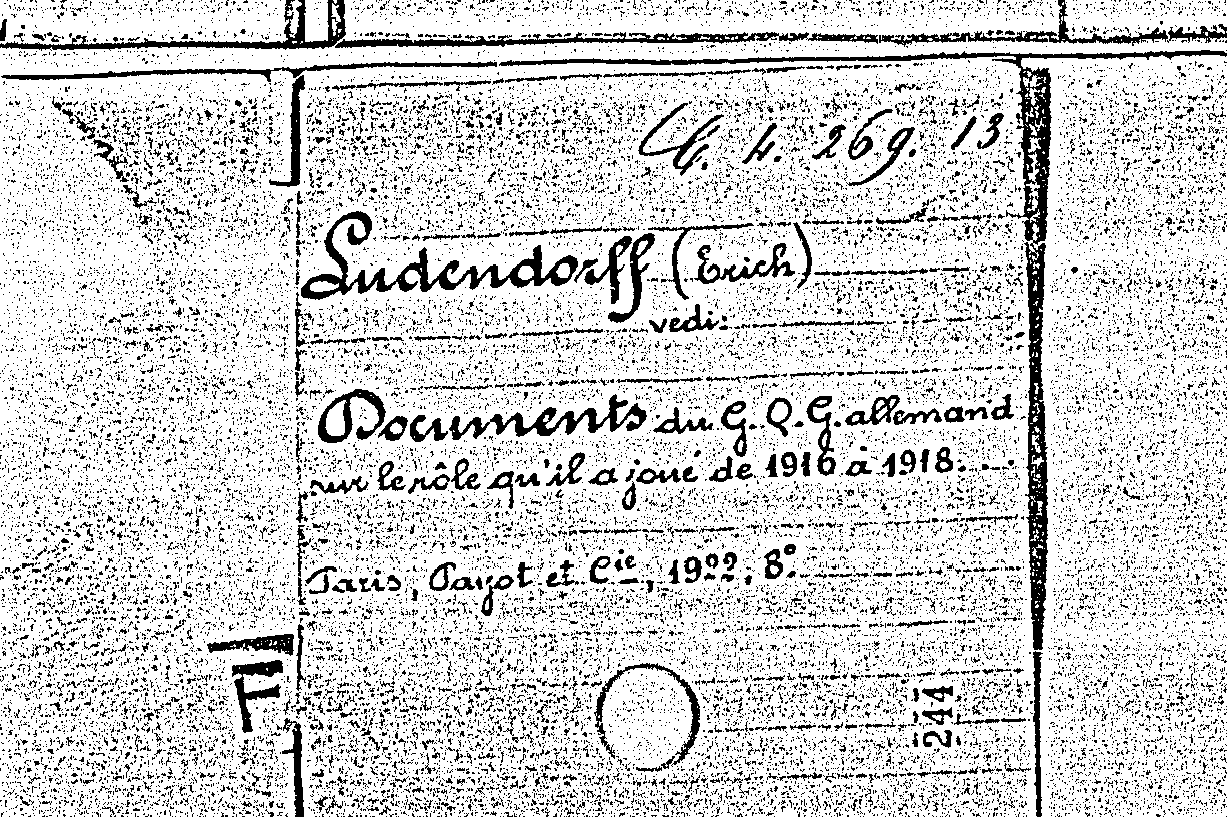 4. 269. 13
Ludendorff (Erich)
vedi:
Documents du G. Q. G. allemand
sur le rôle qu'il a joué de 1916 à 1918. ...
Paris, Payot et Cie, 1922; 8°.
244